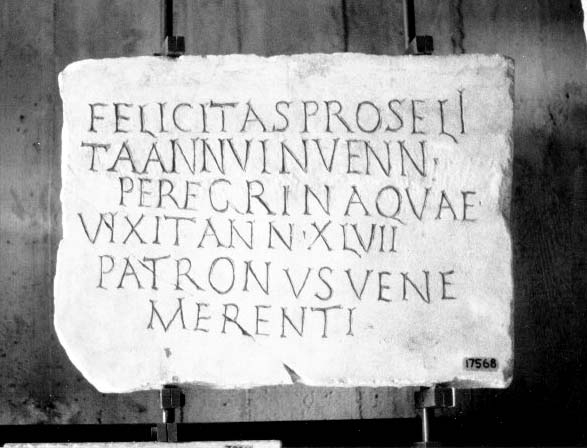 FELICITAS PROSELI
TA ANN VI NVENN
PEREGRINA QVAE
VIXIT ANN · XLVII
PATRONVS VENE
MERENTI
17568